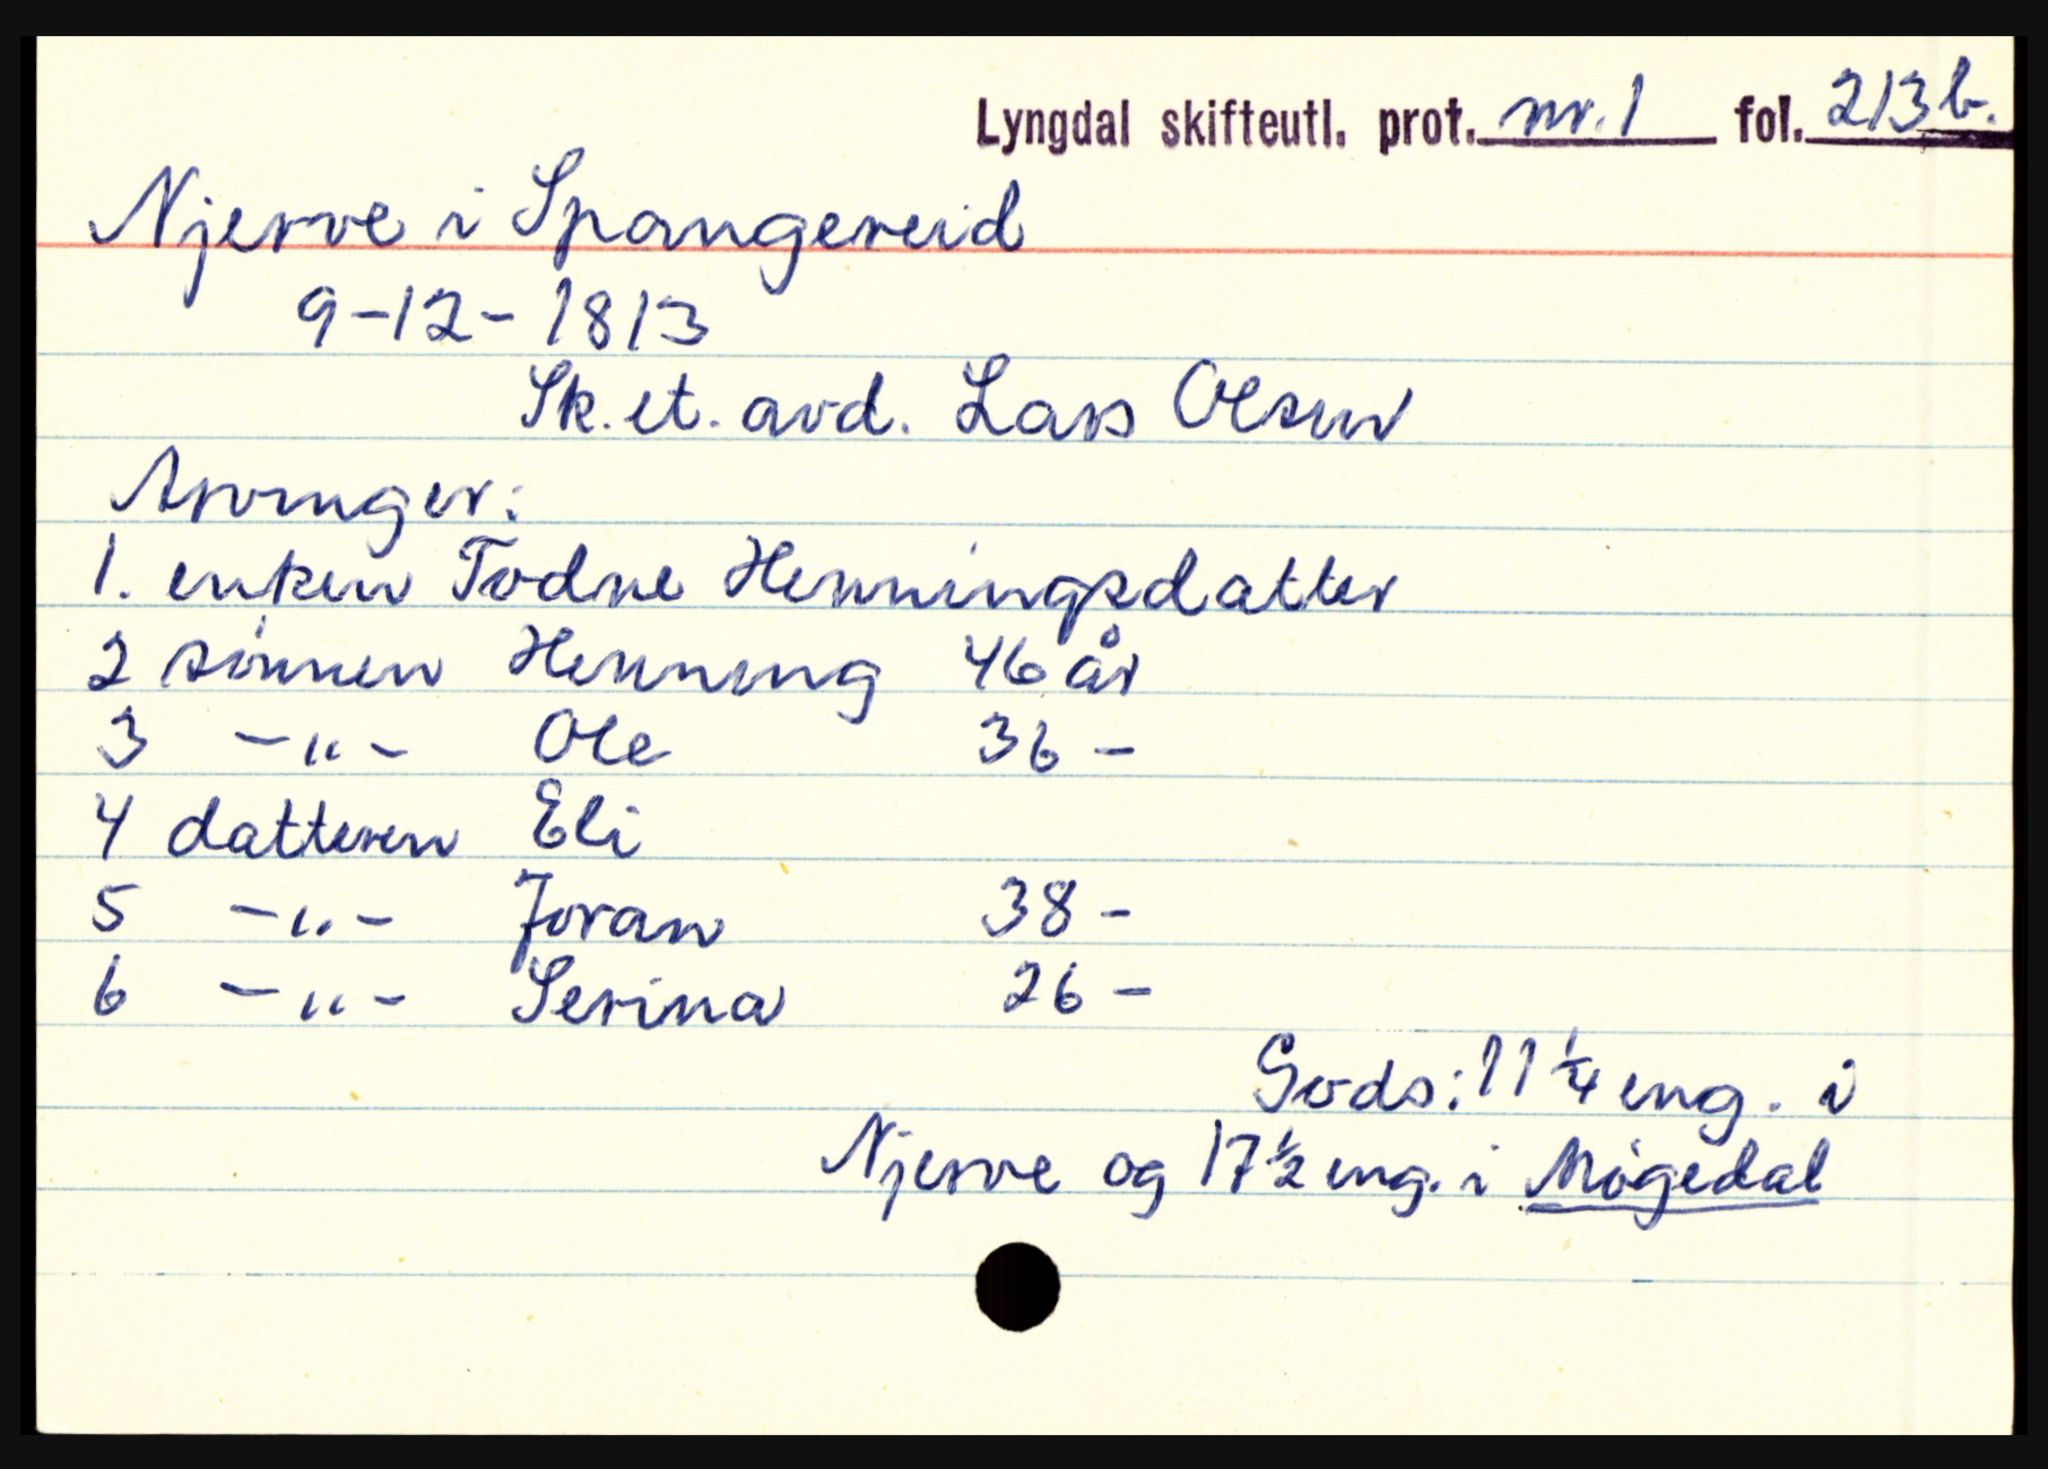 Lyngdal skifteutl. prot. nr. 1 fol. 213b.
Njerve i Spangereid
9-12-1813
Sk. et. avd. Lars Olsen
Arvinger:
1. enken Todne Henningsdatter
2 sønnen Henning 46 år
3 -"- Ole 36 -
4 datteren Eli
5 -"- Joran 38 -
6 -"- Serina 26 -
Gods: 11 1/4 eng. i
Njerve og 17 1/2 eng. i Møgedal